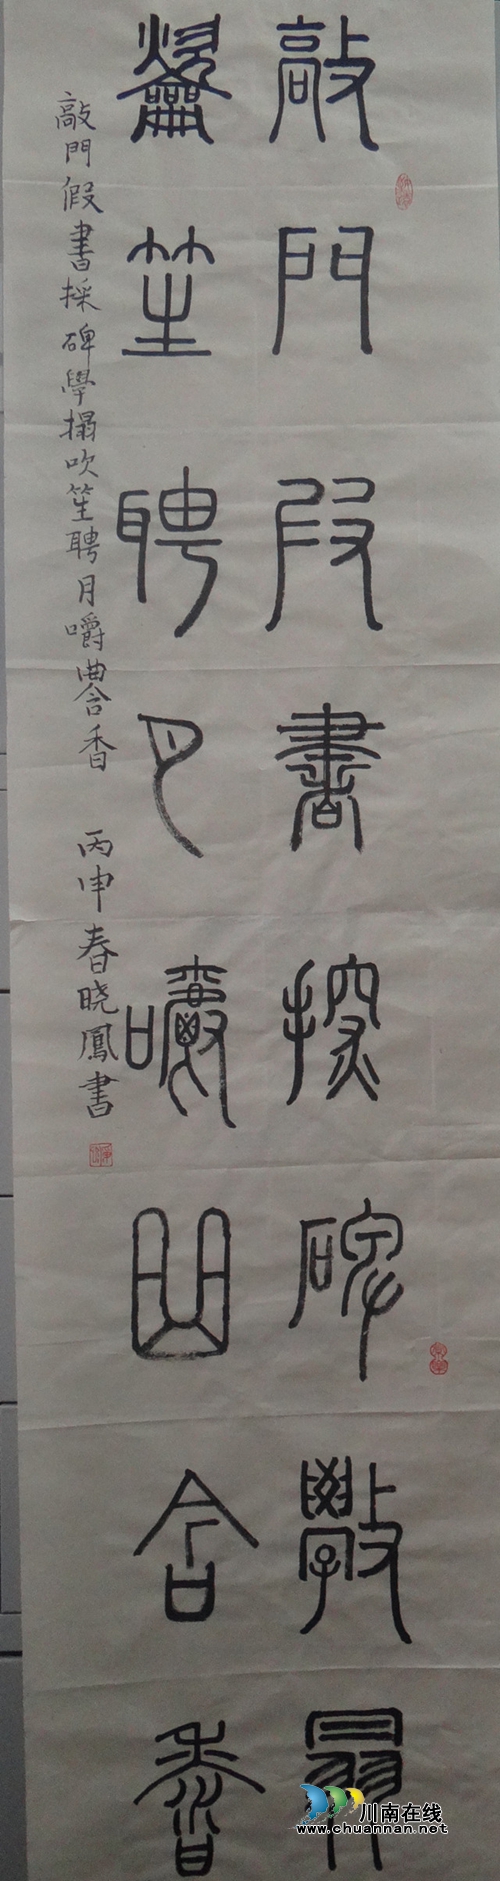 敲門叚書採碑學搨
龡笙聘月嚼曲含香
敲門假書採碑學搨吹笙聘月嚼曲含香 丙申春晓鳳書
川南在线
www.chuannan.net